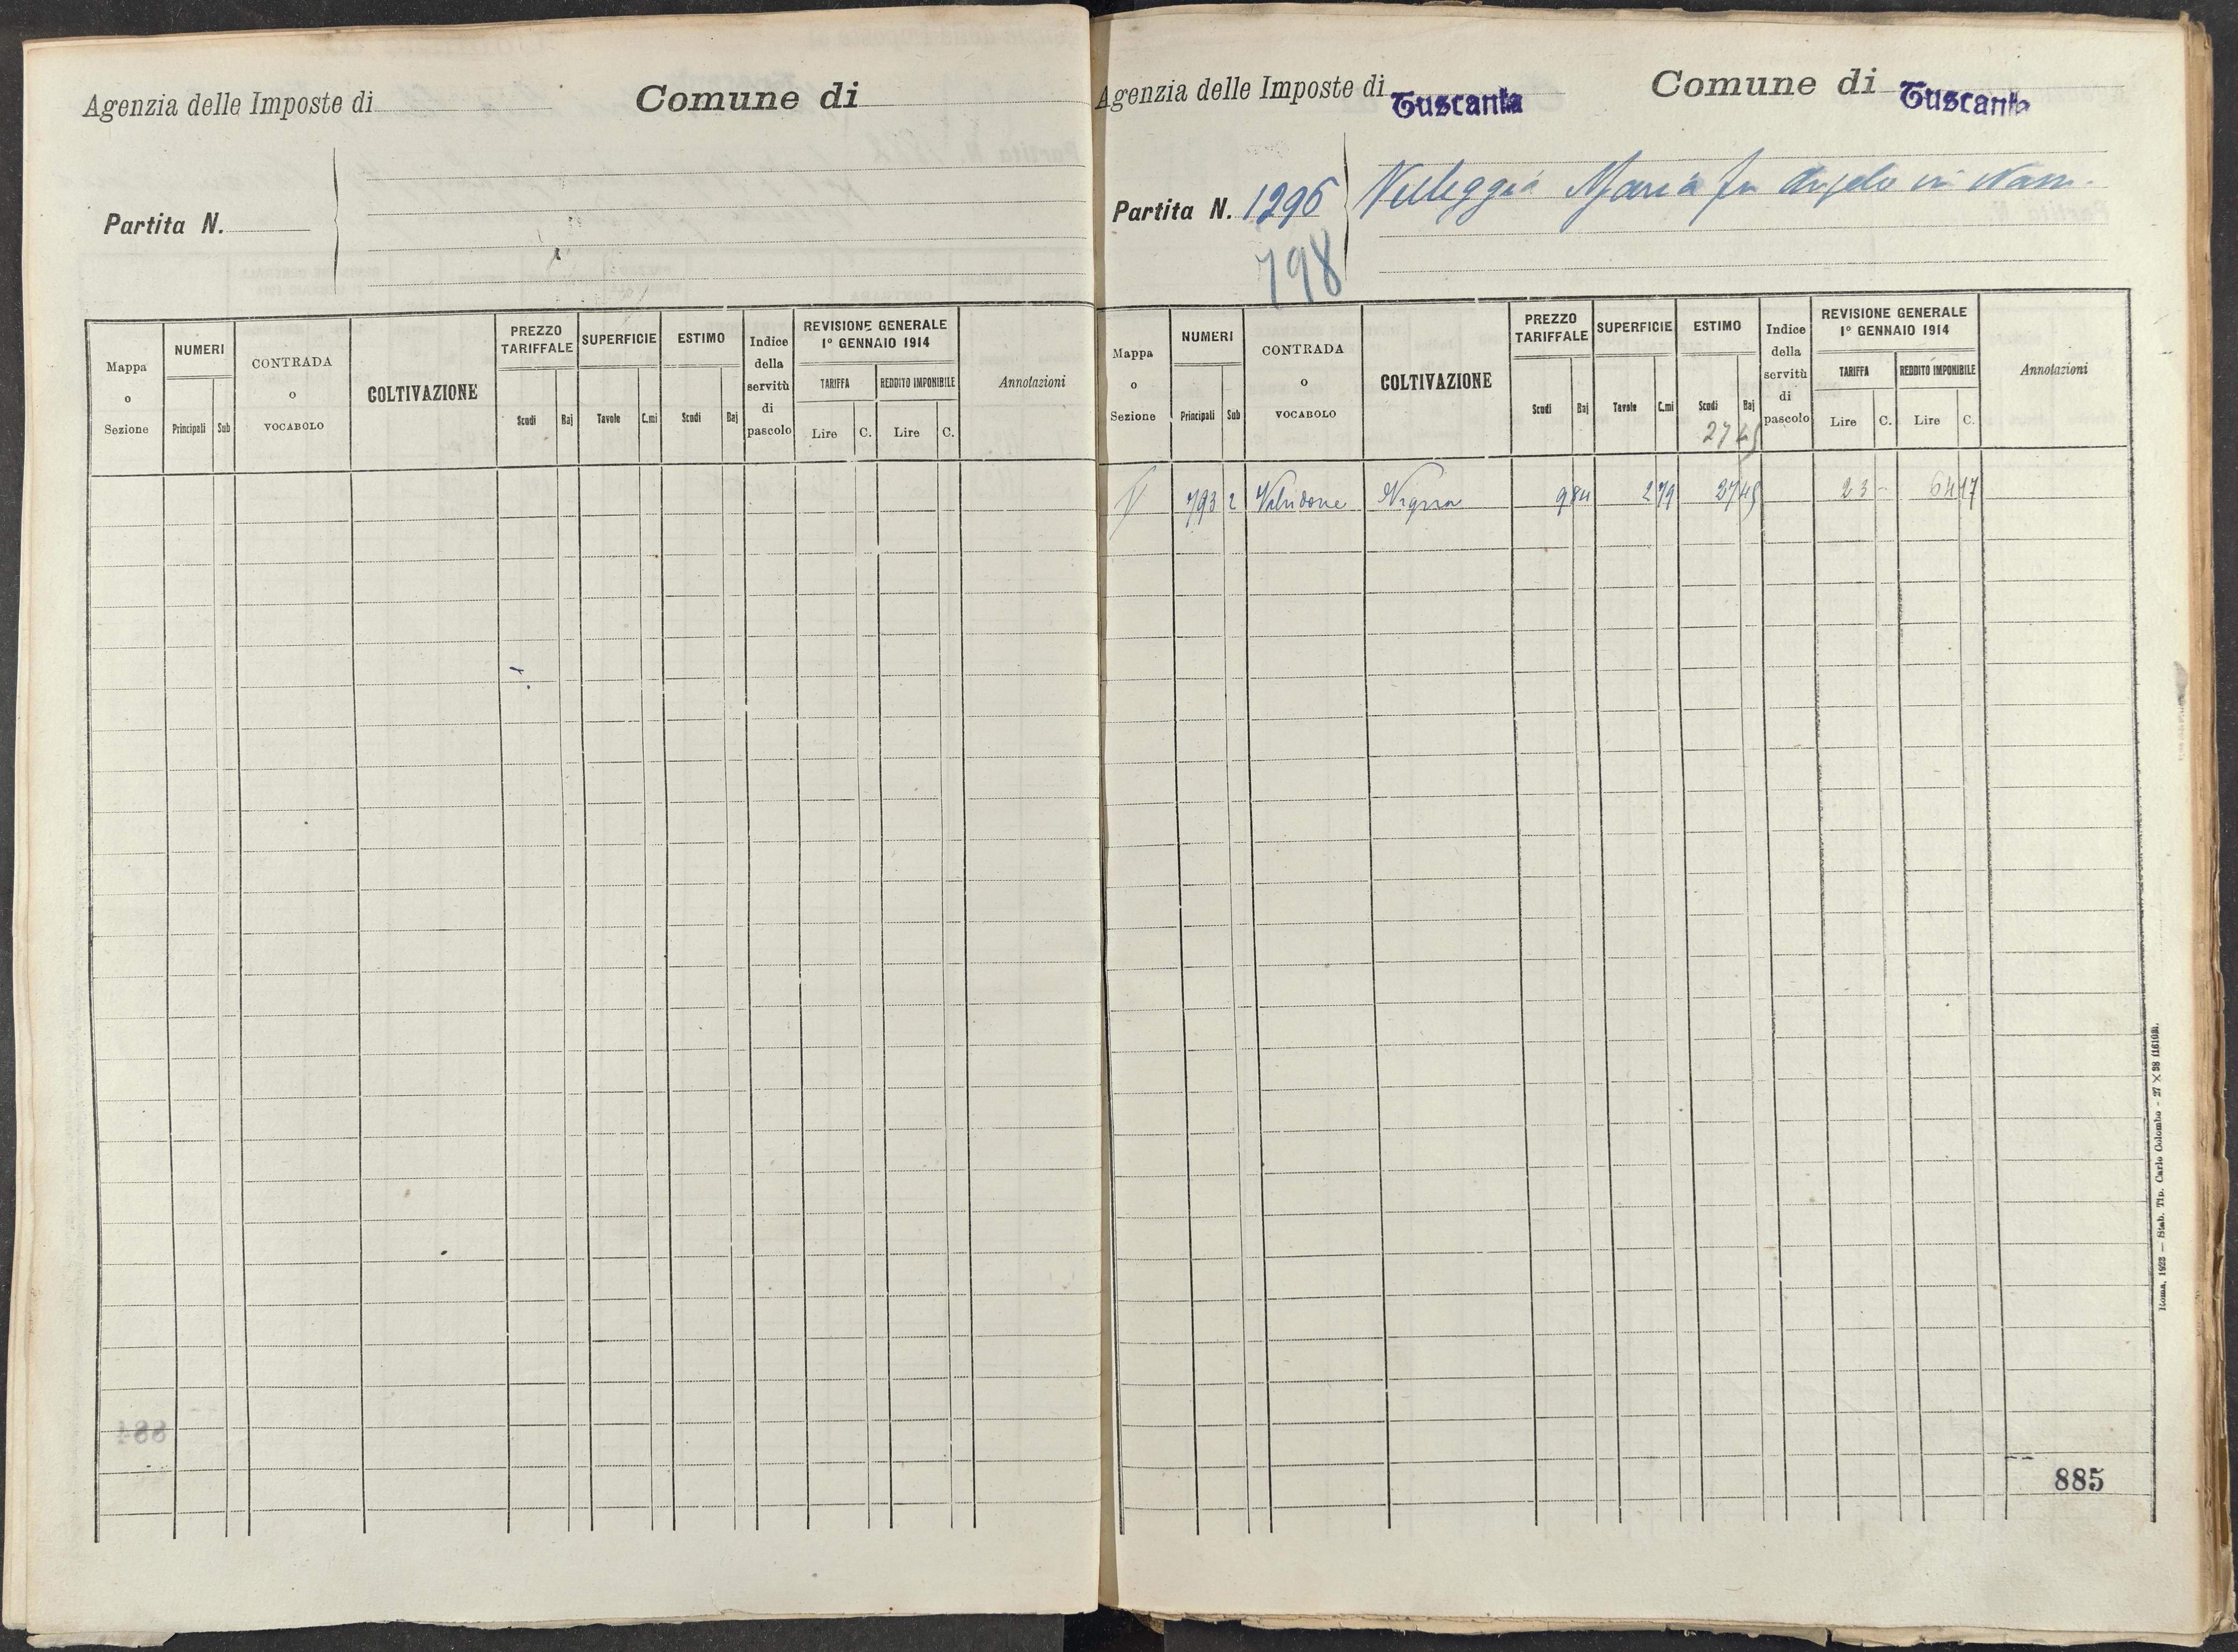 Agenzia delle Imposte di
Comune di
Partita N.
Mappa o Sezione
NUMERI
Principali Sub
CONTRADA o VOCABOLO
COLTIVAZIONE
PREZZO TARIFFALE
Scudi Baj
SUPERFICIE
Tavole C.mi
ESTIMO
Scudi Baj
Indice della servitù di pascolo
REVISIONE GENERALE
1° GENNAIO 1914
TARIFFA REDDITO IMPONIBILE
Lire C. Lire C.
Annotazioni
884
Agenzia delle Imposte di Tuscania
Comune di Tuscania
Partita N. 1296
Maria fu Angelo in
798
Mappa o Sezione
NUMERI
Principali Sub
CONTRADA o VOCABOLO
COLTIVAZIONE
PREZZO TARIFFALE
Scudi Baj
SUPERFICIE
Tavole C.mi
ESTIMO
Scudi Baj
27 45
Indice della servitù di pascolo
REVISIONE GENERALE
1° GENNAIO 1914
TARIFFA REDDITO IMPONIBILE
Lire C. Lire C.
Annotazioni
793 2 Valvidone Vigna 9 84 2 79 27 45 23 - 64 17
885
Roma, 1923 — Stab. Tip. Carlo Colombo - 27 × 38